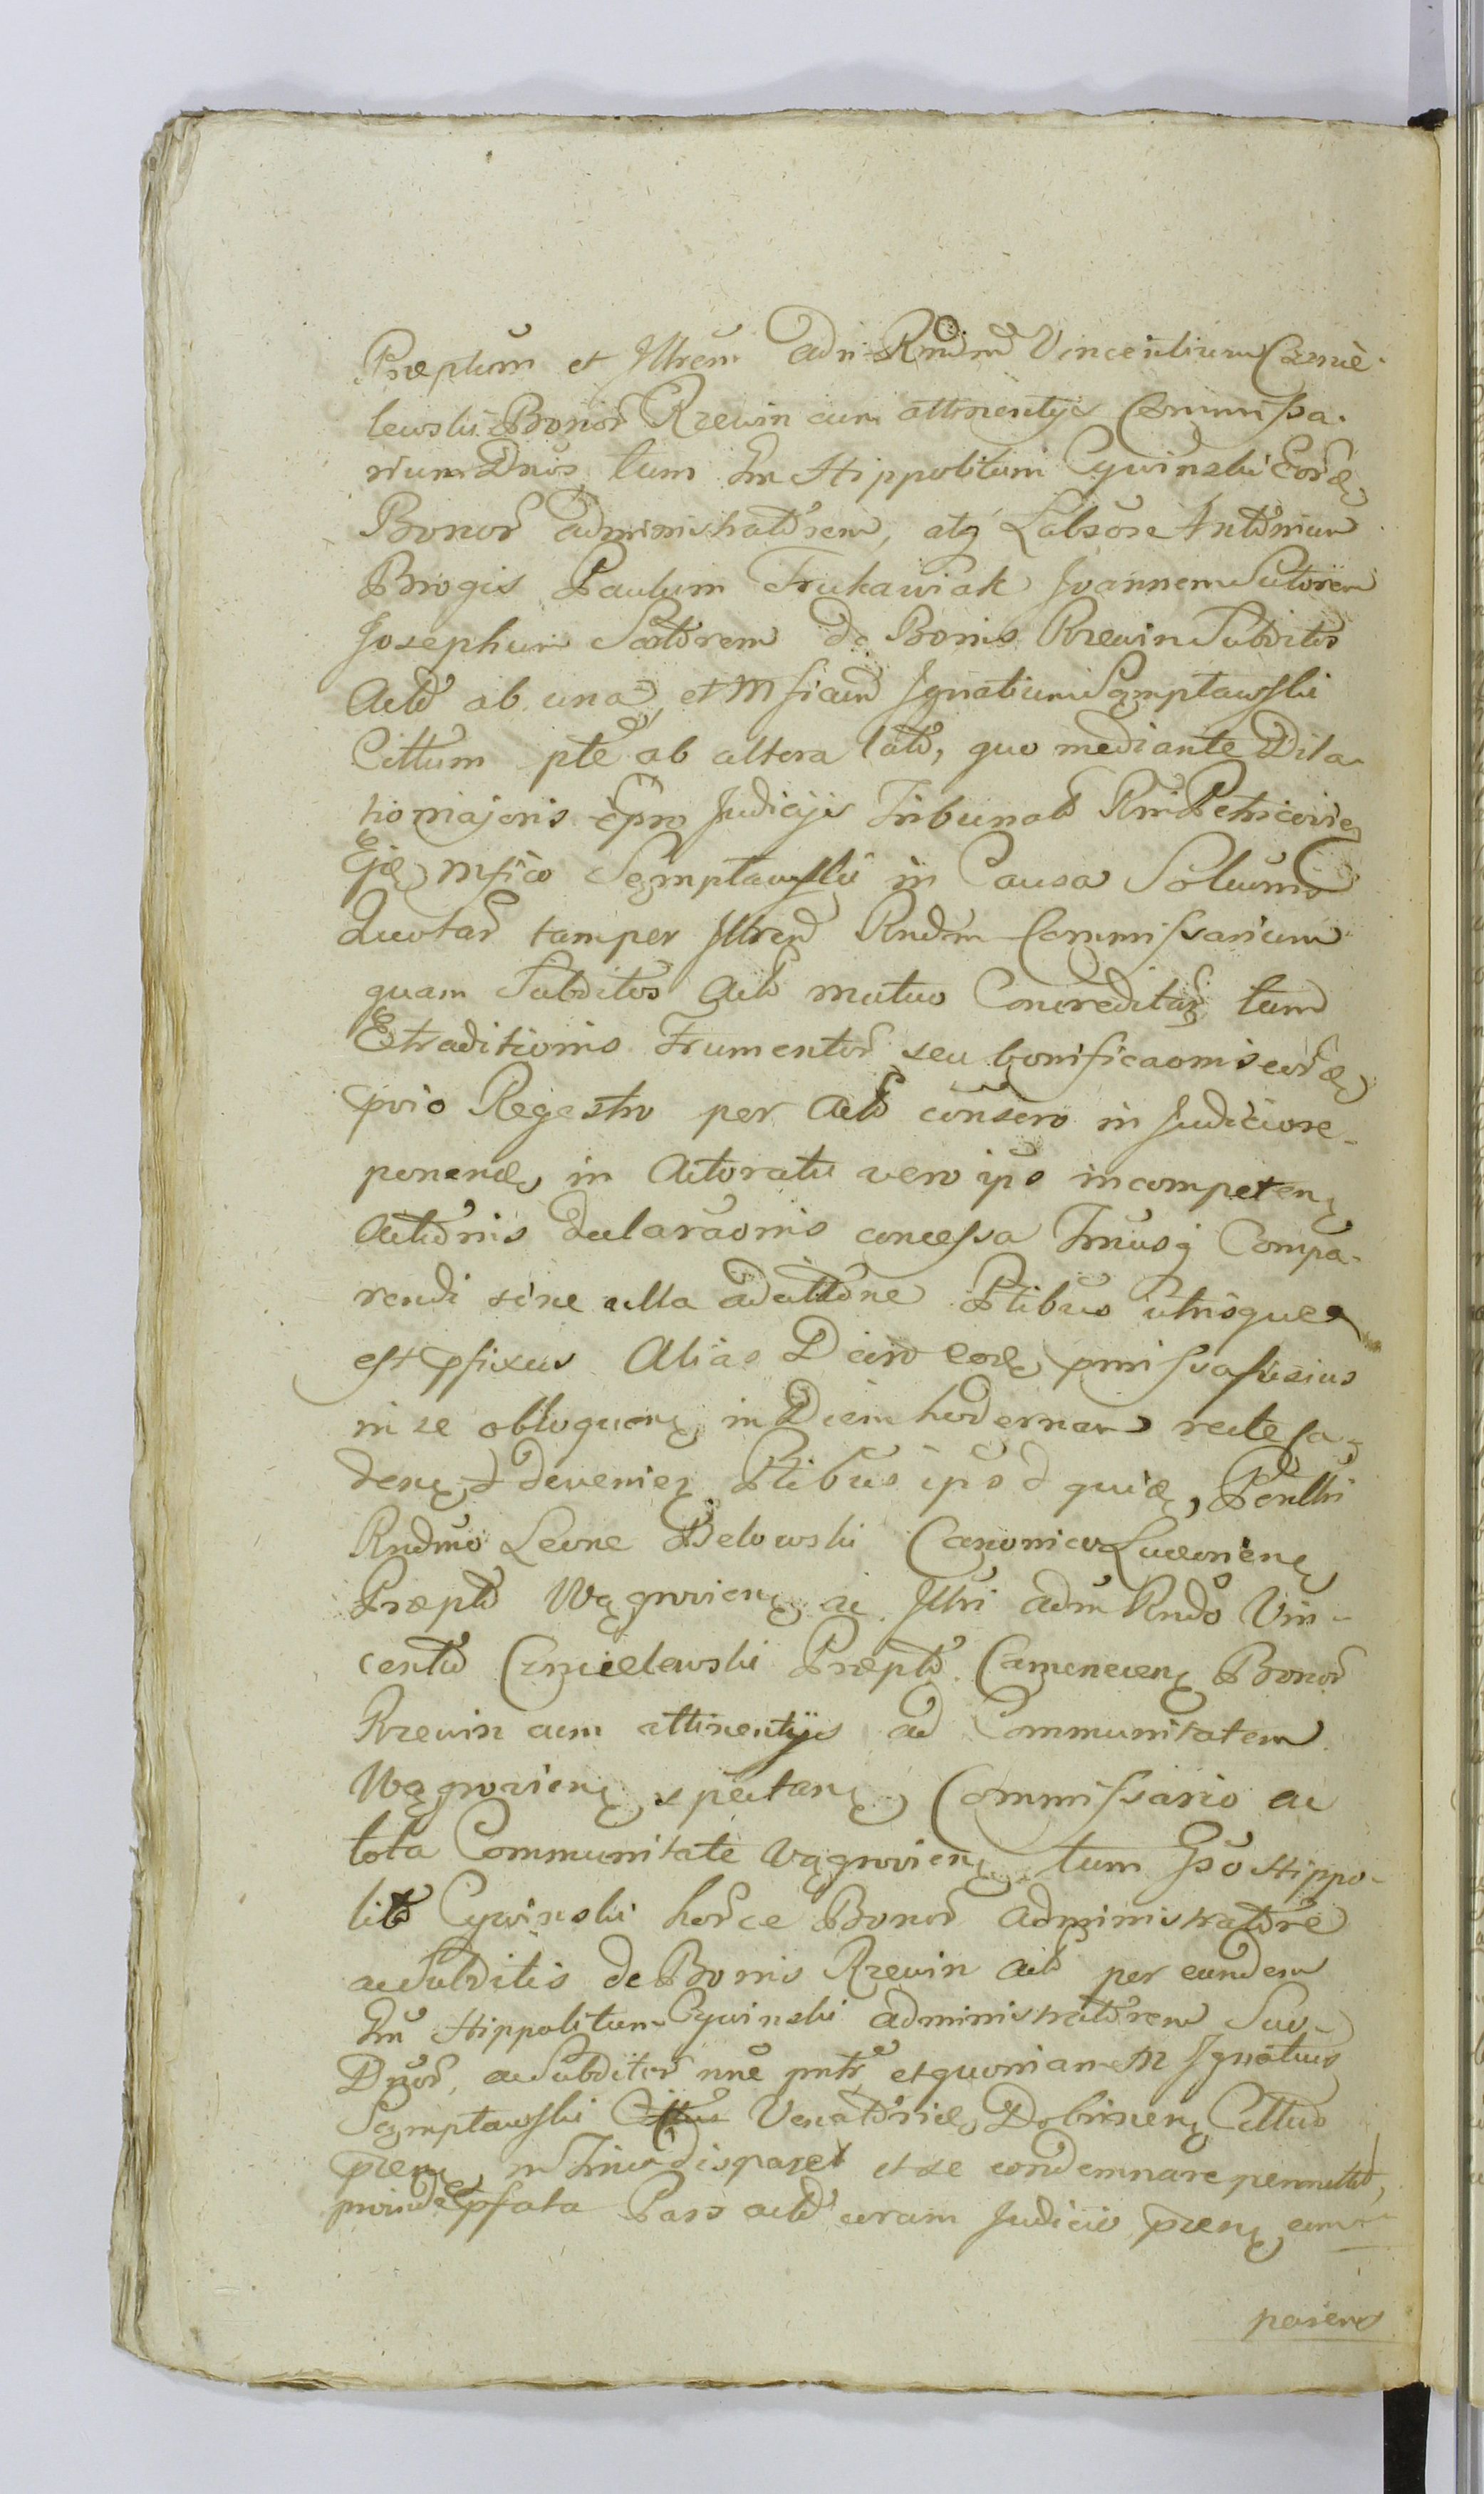 Præptum et Jllrem adm Rndm Vincentium Czmie-
lewski Bonor Rzewin cum attinentys Commissa-
rium Dnos, tum Gm Hippolitum Cywinski Eord
Bonor administratorem, atq Labsos Antonium
Brogis Paulum Trukawiak Joannem Sutorem
Josephum Sartorem de Bonis Rzewin Subditos
Acto ab una, et Mficum Ignatium Sęmptawski
Cittum pte ab altera lato, quo mediante Dila-
tio majoris Judicys Tribunals Rni Petricovien
Mfico Sęmptawski in Causa Solutionis
Quotar tam per Jllrem Rndm Commissarium
quam Subditos Acto mutuo Concreditar tum
Extraditionis Frumentor seu bonificaonis eord
prio Regestro per Acto conscro in Judicio re-
ponend, in Actoratu vero ipso incompeten
Actionis declaraonis concessa Tmusq Compa-
rendi sine ulla adcittone Ptibus utrisque
est pfixus Alias Dcro eod pmissa fusius
in se obloquen, in Diem hodiernam recte ca-
den et devenien Ptibus ipsis quid, Perllri
Rndmo Leone Belowski Canonico Luceorien
Præpto Wągrovien ac Jllri adm Rndo Vin-
cento Czmielewski Præpto Camenecen Bonor
Rzewin cum attinentys ad Communitatem
Wągrovien spectan, Commissario ac
tota Communitate Wągrovien tum Gso Hippo-
lito Cywinski horce Bonor administratore
ac Subditis de Bonis Rzewin Acto per eundem
Gm Hippolitum Cywinski administratorem Suo-
Dnor, ac Subditor nne pntr et quoniam M Ignatius
Sęmptawski Venatorid Dobrinen Cittus
pren in Tmno disparet et se condemnare permittit,
proinde pfata Pars acto coram Judicio pren com-
parens